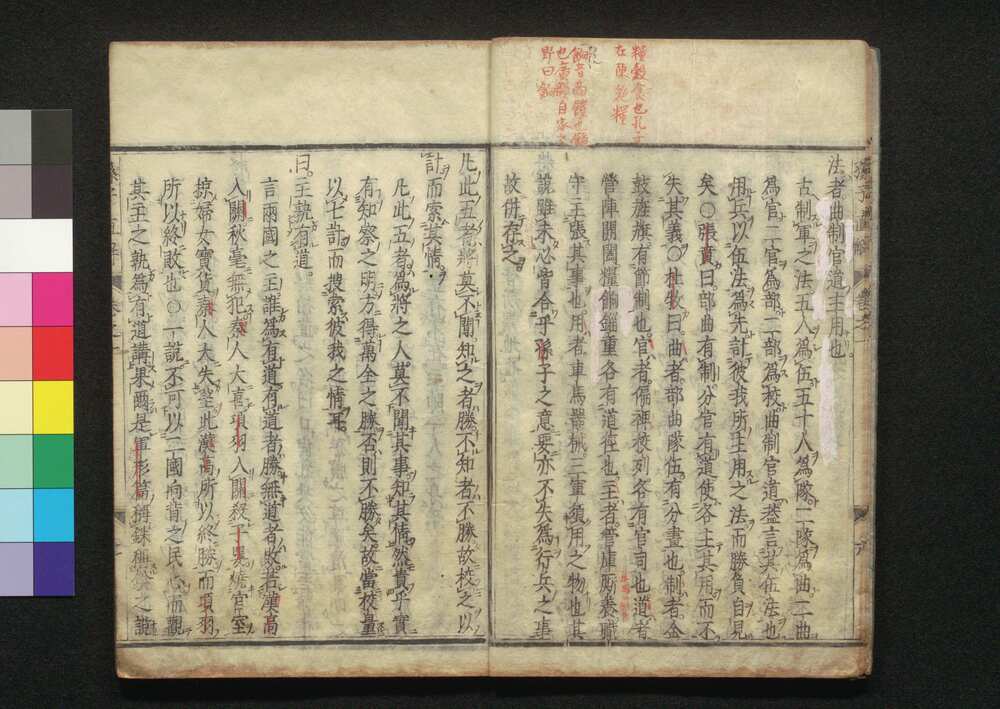 糧穀食也孔子
在陳絶糧
餉音
野曰
法者曲制官道主用也
古制軍之法五人爲伍五十人爲隊二隊爲曲二曲
爲官二官爲部二部爲校曲制官道蓋言其伍法也
用兵以伍法爲先計彼我所主用之法而勝負自見
矣○張賁曰部曲有制分官有道使各主其用而不
失其義○杜牧曰曲者部曲隊伍有分畫也制者金
鼓旌旗有節制也官者偏裨校列各有官司也道者
營陣開闔糧餉錙重各有道徃也主者管庫厮養職
守主張其事也用者車馬器械三軍須用之物也其
說雖未必皆合乎孫子之意要亦不失爲行兵之事
故併存之
凡此五者將莫不聞知之者勝不知者不勝故校之以
計而索其情
凡此五者爲將之人莫不聞其事知其情然貴乎實
有知察之明方得萬全之勝否則不勝矣故當校量
以七計而搜索彼我之情耳
曰主孰有道
言兩國之主誰爲有道有道者勝無道者敗若漢高
入關秋毫無犯秦人大喜項羽入關殺子嬰燒宮室
掠婦女寶貨秦人大失望此漢高所以終勝而項羽
所以終敗也○一說不可以二國向背之民心而觀
其主之孰爲有道講果爾是軍形篇稱銖稱鎰之說